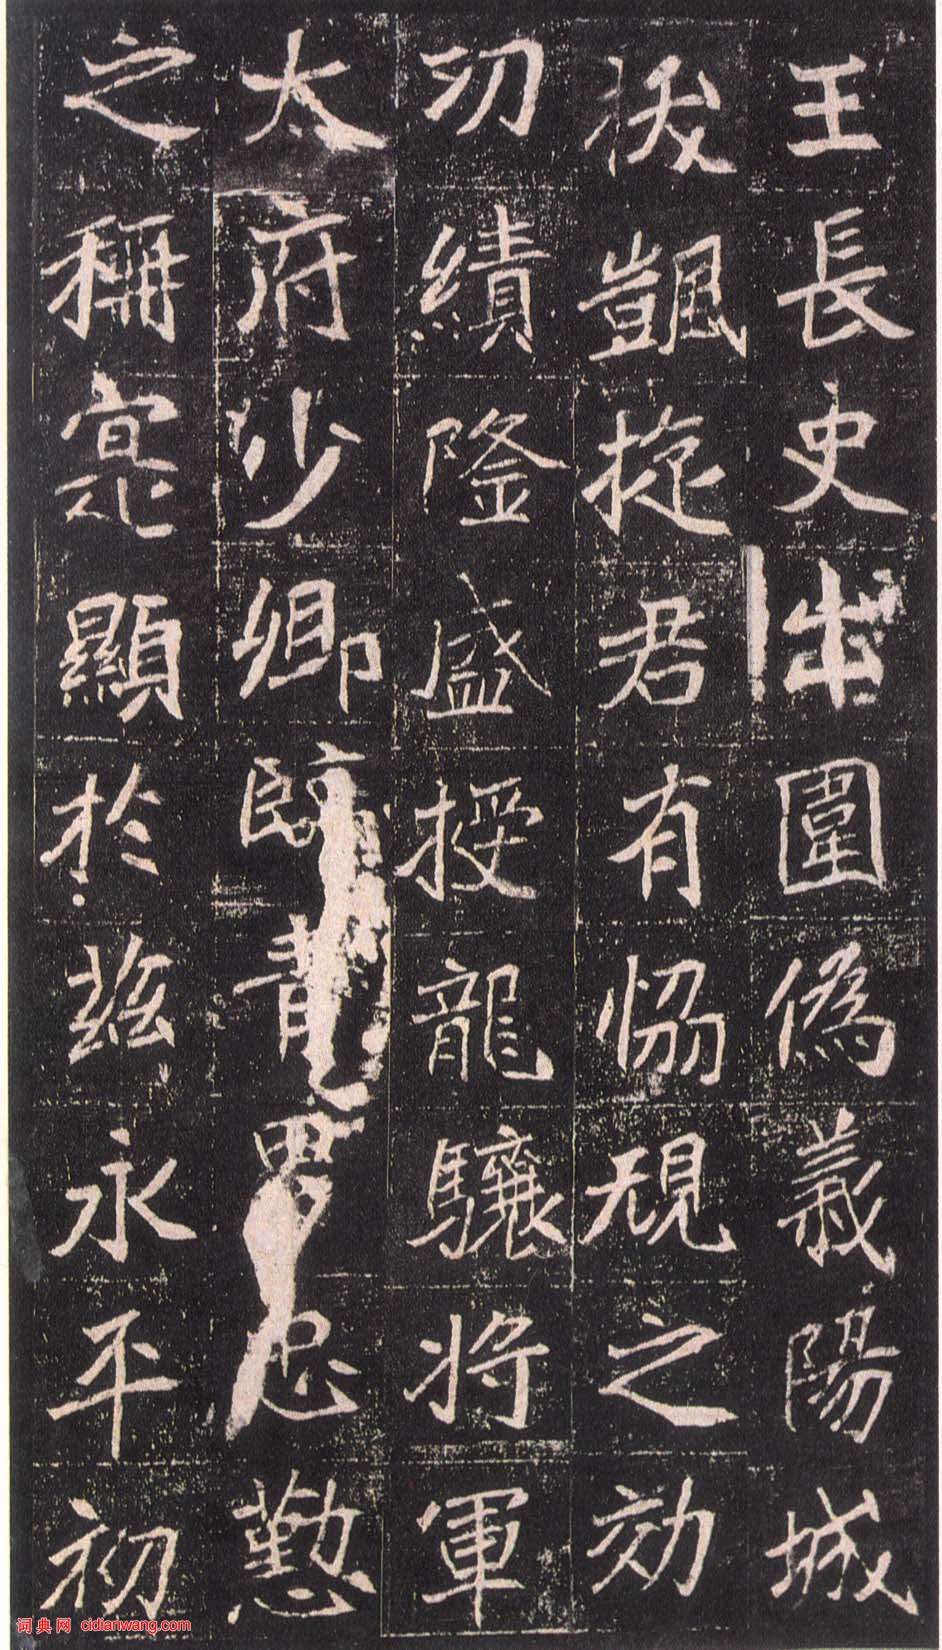 王長史出圍偽義陽城
拔凱旋君有恊規之効
功績隆盛授龍驤將軍
太府少卿臨青男忠懃
之稱寔顯於茲永平初
词典网 cidianwang.com